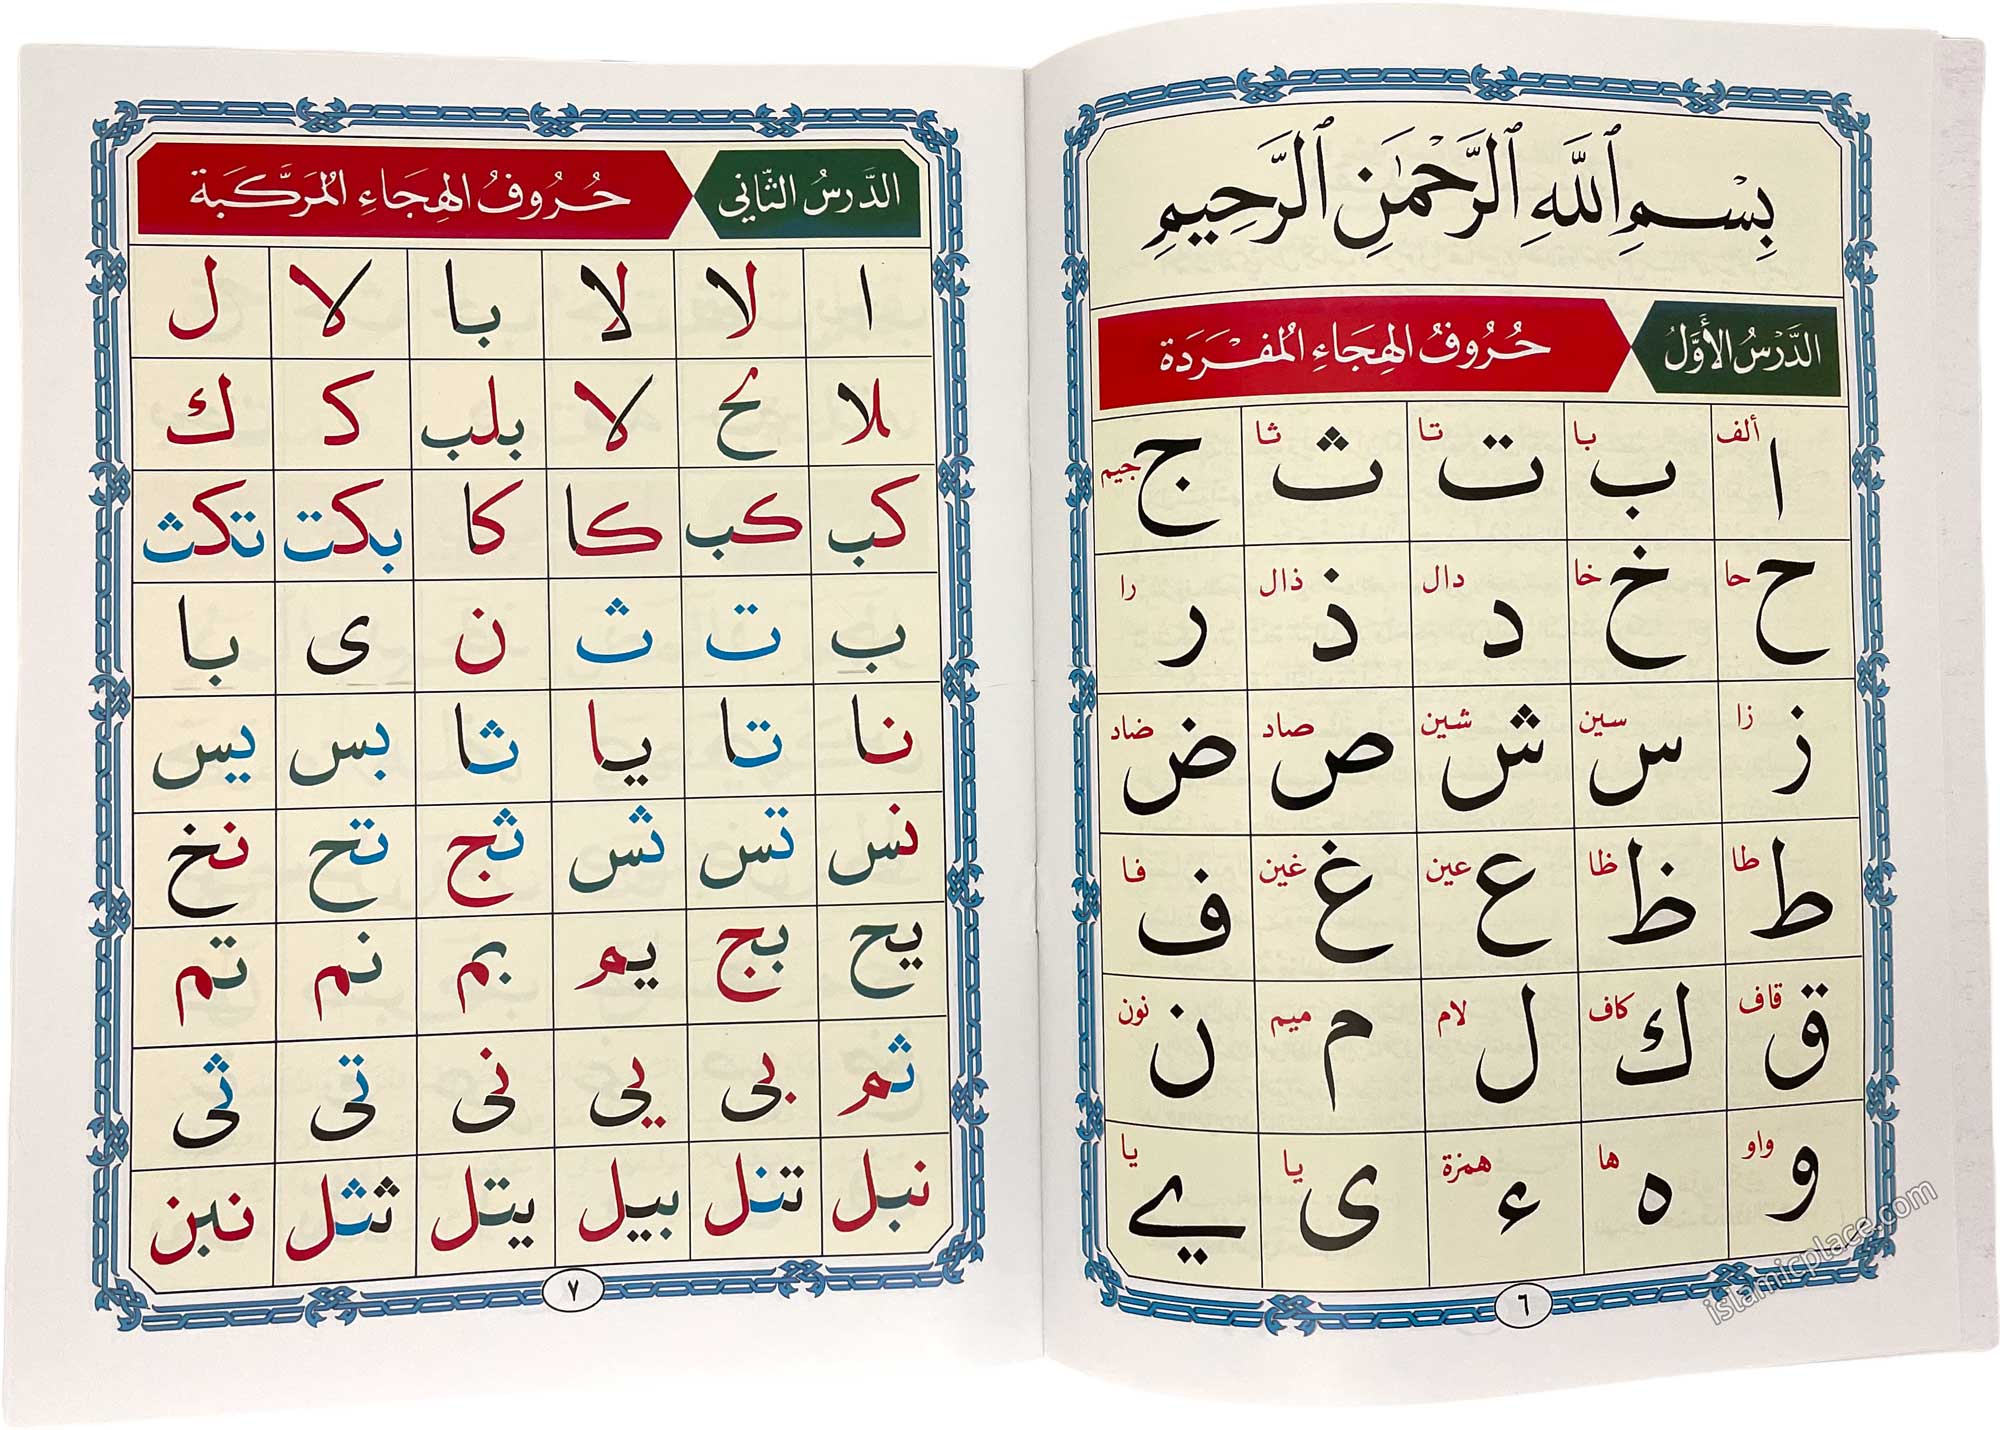 بِسْمِ ٱللَّهِ ٱلرَّحْمَٰنِ ٱلرَّحِيمِ
الدَّرْسُ الْأَوَّلُ حُرُوفُ الْهِجَاءِ الْمُفْرَدَة
ا ألف ب با ت تا ث ثا ج جيم
ح حا خ خا د دال ذ ذال ر را
ز زا س سين ش شين ص صاد ض ضاد
ط طا ظ ظا ع عين غ غين ف فا
ق قاف ك كاف ل لام م ميم ن نون
و واو ه ها ء همزة ى يا ے يا
٦
الدَّرْسُ الثَّانِي حُرُوفُ الْهِجَاءِ الْمُرَكَّبَة
ا لا لا با لا ل
بلب لا ك ك
كب كب كا كا بكت تكث
ب ت ث ن ى با
نا تا يا ثا بس يس
نس تس ثس ثج تح نخ
يح بج يم بم نم تم
ثم بى يى نى تى ثى
نبل تنل بيل يتل ثثل نبن
٧
islamicplace.com